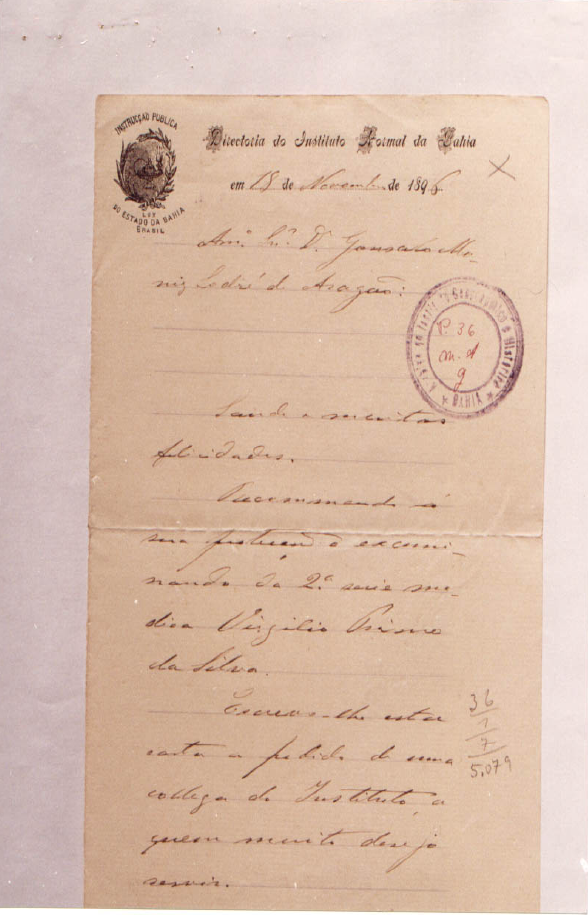 INSTRUCÇÃO PUBLICA
LUX
DO ESTADO DA BAHIA
BRASIL
Directoria do Instituto Normal da Bahia
em 18 de Novembro de 1896
Amº. Sr. Dr. Gonsalo Mo-
niz Sodré d' Aragão:
P. 36
m. A
9
BAHIA
Saude e muitas
felicidades.
Recommendo á
sua protecção o exami-
nando da 2ª serie me-
dica Virgilio Primo
da Silva.
Escrevo-lhe esta
carta a pedido de uma
collega do Instituto a
quem muito desejo
servir.
36
1
7
5.079